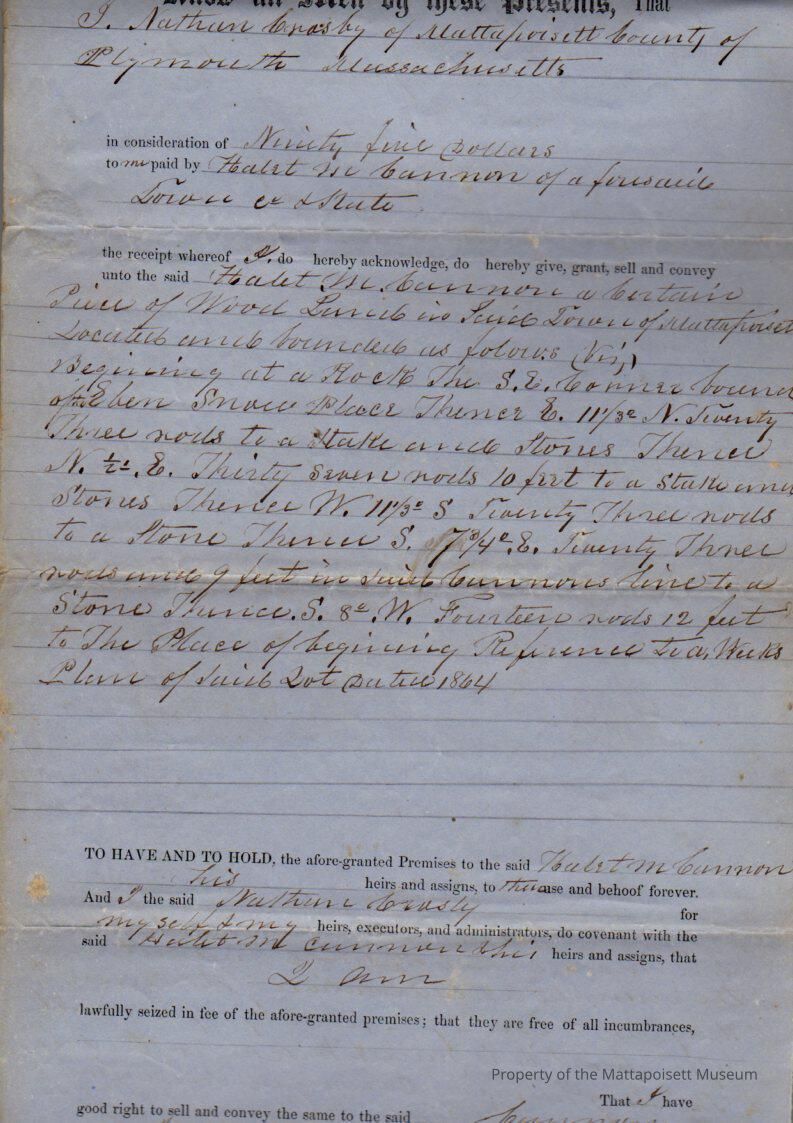 Know all Men by these Presents, That
I. Nathan Crosby of Mattapoisett County of
Plymouth Massachusetts
in consideration of Ninity five Dollars
to me paid by Halet M Cannon of a foresaid
Town & State
the receipt whereof I. do hereby acknowledge, do hereby give, grant, sell and convey
unto the said Halet M. Cannon a Certain
Piece of Wood Land in Said Town of Mattapoisett
Located and bounded as folows (Viz)
Begining at a Rock The S.E. Corner bound
of the Eben Snow Place Thence E. 11/3° N. Twenty
Three rods to a Stake and Stones Thence
N. ½° E. Thirty Seven rods 10 feet to a Stake and
Stones Thence W. 11/3° S Twenty Three rods
to a Stone Thence S. 7¾° E. Twenty Three
rods and 9 feet in said Cannons line to a
Stone Thence. S. 8° W. Fourteen rods 12 feet
to The Place of begining Reference to a. Weeks
Plan of Said Lot Dated 1864
TO HAVE AND TO HOLD, the afore-granted Premises to the said Halet M Cannon
his heirs and assigns, to use and behoof forever.
And I the said Nathan Crosby for
my self & my heirs, executors, and administrators, do covenant with the
said Halet M Cannon & his heirs and assigns, that
I am
lawfully seized in fee of the afore-granted premises; that they are free of all incumbrances,
That I have
good right to sell and convey the same to the said Cannon
Property of the Mattapoisett Museum